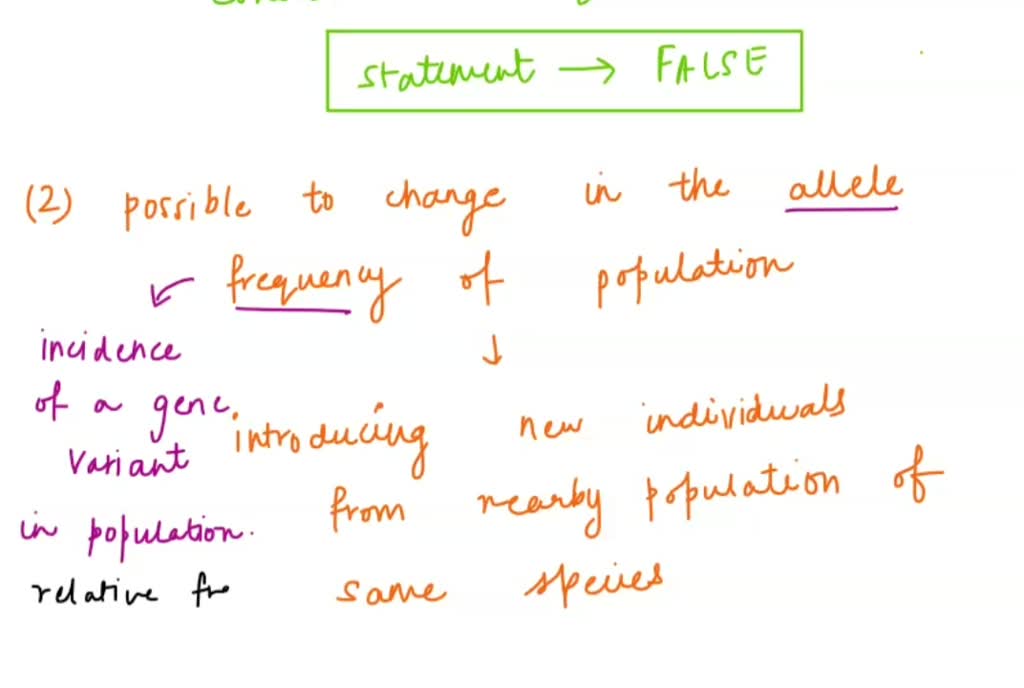 statement → FALSE
(2) possible to change in the allele
frequency of population
↓
incidence
of a gene
variant
in population.
relative fre
introducing new individuals
from nearby population of
same species